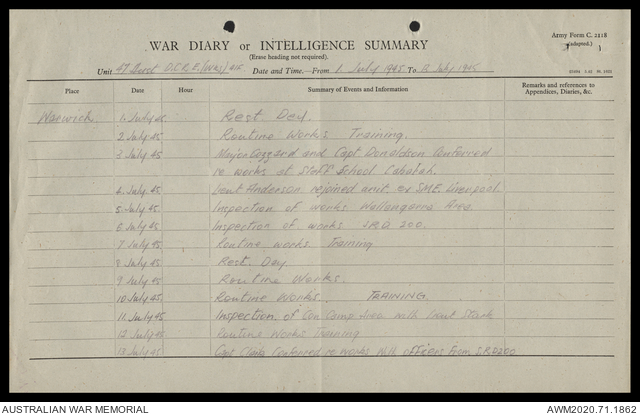 Army Form C. 2118
(Adapted.)
1
WAR DIARY or INTELLIGENCE SUMMARY
(Erase heading not required).
Unit D.C.R.E. (Wks) AIF Date and Time.—From 1 July 1945 To 13 July 1945
Place Date Hour Summary of Events and Information Remarks and references to
Appendices, Diaries, &c.
Warwick. 1 July 45 Rest Day.
2 July 45 Routine Works Training.
3 July 45 Major Goggard and Capt Donaldson Conferred
re works at Staff School Cabarlah.
4 July 45 Lieut Anderson rejoined unit ex SME Liverpool.
5 July 45 Inspection of works Wallangarra Area.
6 July 45 Inspection of works 200.
7 July 45 Routine works Training
8 July 45 Rest Day
9 July 45 Routine Works.
10 July 45 Routine Works. TRAINING.
11 July 45 Inspection of Con Camp Area with Lieut Stark
12 July 45 Routine Works Training
13 July 45 Capt Conferred re works with officers from 200
AUSTRALIAN WAR MEMORIAL
AWM2020.71.1862